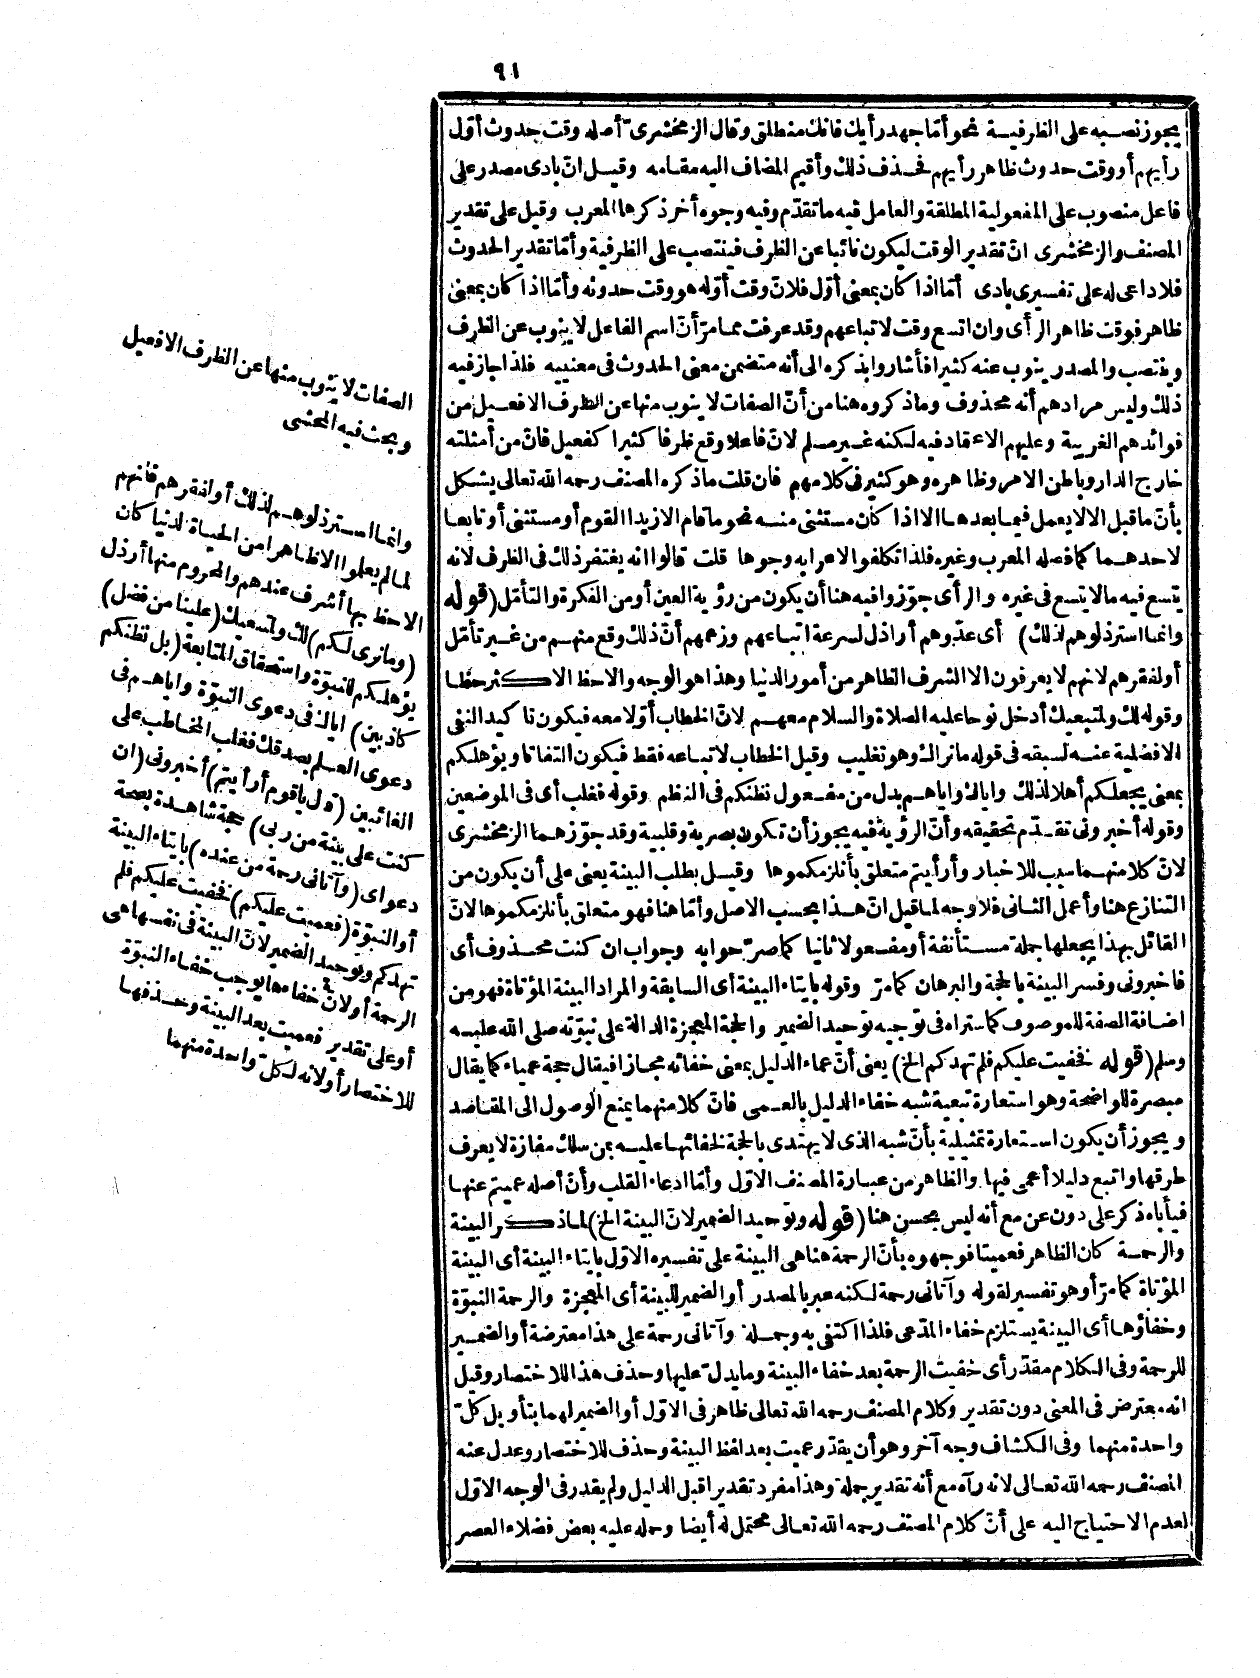 ٩١
يجوز نصبه على الظرفية نحو أمّا جهد رأيك فانك منطلق وقال الزمخشرى أصله وقت حدوث أوّل
رأيهم أو وقت حدوث ظاهر رأيهم فحذف ذلك وأقيم المضاف اليه مقامه وقيل انّ بادى مصدر على
فاعل منصوب على المفعولية المطلقة والعامل فيه ما تقدّم وفيه وجوه أخر ذكرها المعرب وقيل على تقدير
المصنف والزمخشرى انّ تقدير الوقت ليكون نائبا عن الظرف فينتصب على الظرفية وأمّا تقدير الحدوث
فلا داعى له على تفسيرى بادى أمّا اذا كان بمعنى أوّل فلانّ وقت أوّله هو وقت حدوثه وأمّا اذا كان بمعنى
ظاهر فوقت ظاهر الرأى وان اتسع وقت لاتباعهم وقد عرفت مما مرّ أنّ اسم الفاعل لا ينوب عن الظرف
وينتصب والمصدر ينوب عنه كثيرا فأشار وابذكره الى أنه متضمن معنى الحدوث فى معنييه فلذا جاز فيه
ذلك وليس مرادهم أنه محذوف وما ذكروه هنا من أنّ الصفات لا ينوب منها عن الظرف الا فعيل من
فوائدهم الغريبة وعليهم الاعتماد فيه لكنه غير مسلم لانّ فاعلا وقع ظرفا كثيرا كفعيل فانّ من أمثلته
خارج الدار وباطن الامر وظاهره وهو كثير فى كلامهم فان قلت ما ذكره المصنف رحمه الله تعالى يشكل
بأنّ ما قبل الا لا يعمل فيما بعدها الا اذا كان مستثنى منه نحو ما قام الا زيدا القوم أو مستثنى أو تابعا
لاحدهما كما فصله المعرب وغيره فلذا تكلفوا لاعرابه وجوها قلت قالوا انه يغتفر ذلك فى الظرف لانه
يتسع فيه ما لا يتسع فى غيره والرأى جوّزوا فيه هنا أن يكون من رؤية العين أو من الفكرة والتأمّل (قوله
وانما استرذلوهم لذلك) أى عدّوهم أراذل لسرعة اتباعهم وزعمهم أنّ ذلك وقع منهم من غير تأمّل
أو لفقرهم لانهم لا يعرفون الا الشرف الظاهر من أمور الدنيا وهذا هو الوجه والاحظ الاكثر حظا
وقوله لك ولمتبعيك أدخل نوحا عليه الصلاة والسلام معهم لانّ الخطاب أوّلا معه فيكون تاكيد النفى
الافضلية عنه لسبقه فى قوله ما نراك وهو تغليب وقيل الخطاب لاتباعه فقط فيكون التفاتا ويؤهلكم
بمعنى يجعلكم أهلا لذلك واياك واياهم بدل من مفعول نظنكم فى النظم وقوله فغلب أى فى الموضعين
وقوله أخبرونى تقدّم تحقيقه وأنّ الرؤية فيه يجوز أن تكون بصرية وقلبية وقد جوّزهما الزمخشرى
لانّ كلا منهما سبب للاخبار وأرأيتم متعلق بأنلزمكموها وقيل بطلب البينة يعنى على أن يكون من
التنازع هنا وأعمل الثانى فلا وجه لما قيل انّ هذا بحسب الاصل وأمّا هنا فهو متعلق بأنلزمكموها لانّ
القائل بهذا يجعلها جملة مستأنفة أو مفعولا ثانيا كما صرّحوا به وجواب ان كنت محذوف أى
فاخبرونى وفسر البينة بالحجة والبرهان كما مرّ وقوله بايتاء البينة أى السابقة والمراد البينة المؤتاة فهو من
اضافة الصفة للموصوف كما ستراه فى توجيه توحيد الضمير والحجة المعجزة الدالة على نبوّته صلى الله عليه
وسلم (قوله فخفيت عليكم فلم تهدكم الخ) يعنى أنّ عماء الدليل بمعنى خفائه مجازا فيقال حجة عمياء كما يقال
مبصرة للواضحة وهو استعارة تبعية شبه خفاء الدليل بالعمى فانّ كلا منهما يمنع الوصول الى المقاصد
ويجوز أن يكون استعارة تمثيلية بأنّ شبه الذى لا يهتدى بالحجة لخفائها عليه بمن سلك مفازة لا يعرف
طرقها واتبع دليلا أعمى فيها والظاهر من عبارة المصنف الاوّل وأمّا ادعاء القلب وأنّ أصله عميتم عنها
فيأباه ذكر على دون عن مع أنه ليس بحسن هنا (قوله وتوحيد الضمير لانّ البينة الخ) لما ذكر البينة
والرحمة كان الظاهر فعميتا فوجهوه بأنّ الرحمة هنا هى البينة على تفسيره الاوّل بايتاء البينة أى البينة
المؤتاة كما مرّ أو هو تفسير لقوله وآتانى رحمة لكنه عبر بالمصدر أو الضمير للبينة أى المعجزة والرحمة النبوّة
وخفاؤها أى البينة يستلزم خفاء المدّعى فلذا اكتفى به وجملة وآتانى رحمة على هذا معترضة أو الضمير
للرحمة وفى الكلام مقدّر أى خفيت الرحمة بعد خفاء البينة وما يدلّ عليها وحذف هذا للاختصار وقيل
انه معترض فى المعنى دون تقدير وكلام المصنف رحمه الله تعالى ظاهر فى الاوّل أو الضمير لهما بتأويل كلّ
واحدة منهما وفى الكشاف وجه آخر وهو أن يقدّر عميت بعد لفظ البينة وحذف للاختصار وعدل عنه
المصنف رحمه الله تعالى لانه رآه مع أنه تقدير جملة وهذا مفرد تقديرا قبل الدليل ولم يقدر فى الوجه الاوّل
لعدم الاحتياج اليه على أنّ كلام المصنف رحمه الله تعالى محتمل له أيضا وحمله عليه بعض فضلاء العصر
الصفات لا ينوب منها عن الظرف الا فعيل
وبحث فيه المحشى
وانما استرذلوهم لذلك أو لفقرهم فانهم
لما لم يعلموا الا ظاهرا من الحياة الدنيا كان
الاحظ بها أشرف عندهم والمحروم منها أرذل
(وما نرى لكم) لك ولمتبعيك (علينا من فضل)
يؤهلكم للنبوّة واستحقاق المتابعة (بل نظنكم
كاذبين) اياك فى دعوى النبوّة واياهم فى
دعوى العلم بصدقك فغلب المخاطب على
الغائبين (قال يا قوم أرأيتم) أخبرونى (ان
كنت على بينة من ربى) حجة شاهدة بصحة
دعواى (وآتانى رحمة من عنده) بايتاء البينة
أو النبوّة (فعميت عليكم) فخفيت عليكم فلم
تهدكم وتوحيد الضمير لانّ البينة فى نفسها هى
الرحمة أو لانّ خفاءها يوجب خفاء النبوّة
أو على تقدير فعميت بعد البينة وحذفها
للاختصار أو لانه لكلّ واحدة منهما